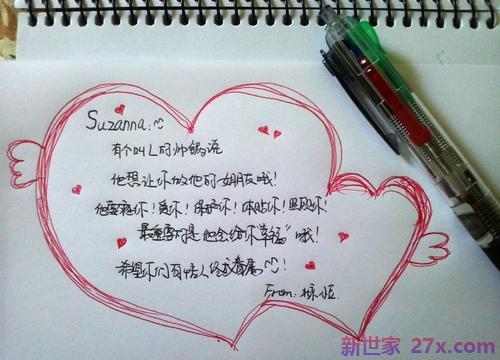 Suzanna:
有个叫L的帅锅说
他想让你做他的女朋友哦!
他要疼你!爱你!保护你!体贴你!照顾你!
最重要的是他会给你“幸福”哦!
希望你们有情人终成眷属!
From:
新世家 27x.com